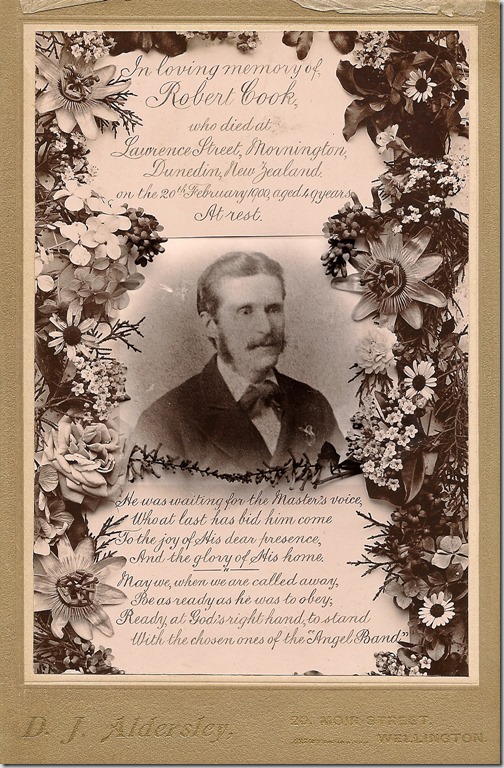 In loving memory of,
Robert Cook,
who died at
Lawrence Street, Mornington,
Dunedin, New Zealand.
on the 20th February 1900, aged 49 years
At rest.
He was waiting for the Master's voice,
Who at last has bid him come
To the joy of His dear presence,
And the glory of His home.
May we, when we are called away,
Be as ready as he was to obey;
Ready, at God's right hand, to stand
With the chosen ones of the "Angel Band"
D. J. Aldersley.
20, MOIR STREET.
WELLINGTON.